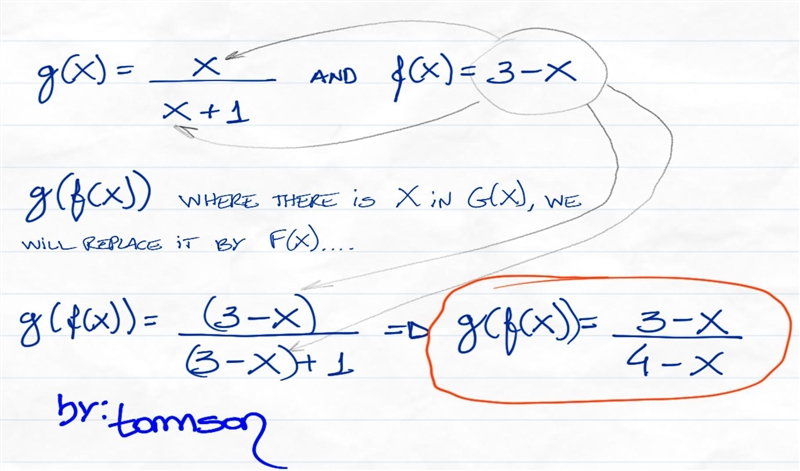 g(x) = x / (x + 1) AND f(x) = 3 - x
g(f(x)) WHERE THERE IS X IN G(X), WE
WILL REPLACE IT BY F(X)....
g(f(x)) = (3 - x) / ((3 - x) + 1) => g(f(x)) = (3 - x) / (4 - x)
by: tomson